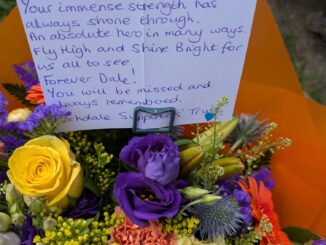 Your immense strength has
always shone through.
An absolute hero in many ways.
Fly High and Shine Bright for
us all to see!
Forever Dale!
You will be missed and
always remembered.
Rochdale Supporters' Trust